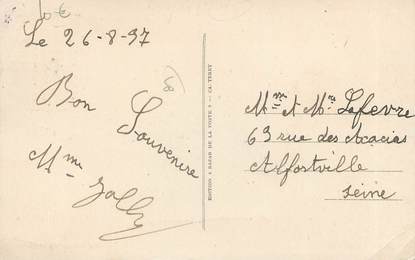 10 €
Le 26-8-37
8
Bon
Souvenire
Mme Jolly
EDITION A BAZAR DE LA POSTE
Mme et Mr. Lefevre
63 rue des Acacias
Alfostville
Seine